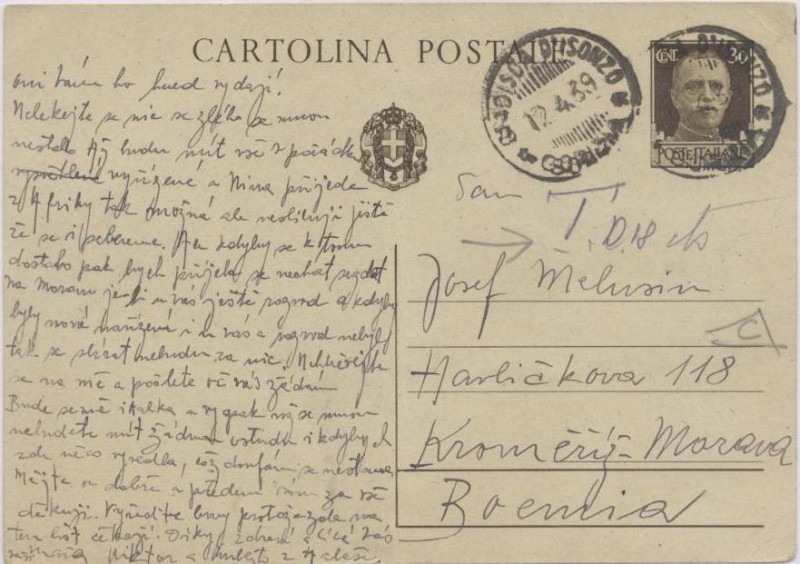 CARTOLINA POSTALE
CENT. 30
POSTE ITALIANE
GRADISCA D'ISONZO
12.4.39
GORIZIA
oni vám ho hned vydají!
Nelekejte se nic se zlého se mnou
nestalo Až budu mít vše v pořádku
vyřízené a Nina přijede
z Afriky tak možná ale neslibuji ještě
že se i sebereme. A kdyby se k tomu
dostalo pak bych přijela se nechat
na Moravu je-li u vás ještě rozvod a kdyby
byly nová nařízení i u vás a rozvod nebyl
tak se nebudu za nic.
se na nic a pošlete oč vás žádám
Bude ze mě italka a vy pak se mnou
nebudete mít žádnou ostudu i kdyby
zde něco vyvedla, což doufám se nestane
Mějte se dobře a předem vám za vše
děkuji. Vyřiďte brzy protože zde na
ten list čekají. Díky zdraví a líbá vás
Viktor a z Italie.
Josef Melusin
Havlíčkova 118
Kroměříž-Morava
Boemia